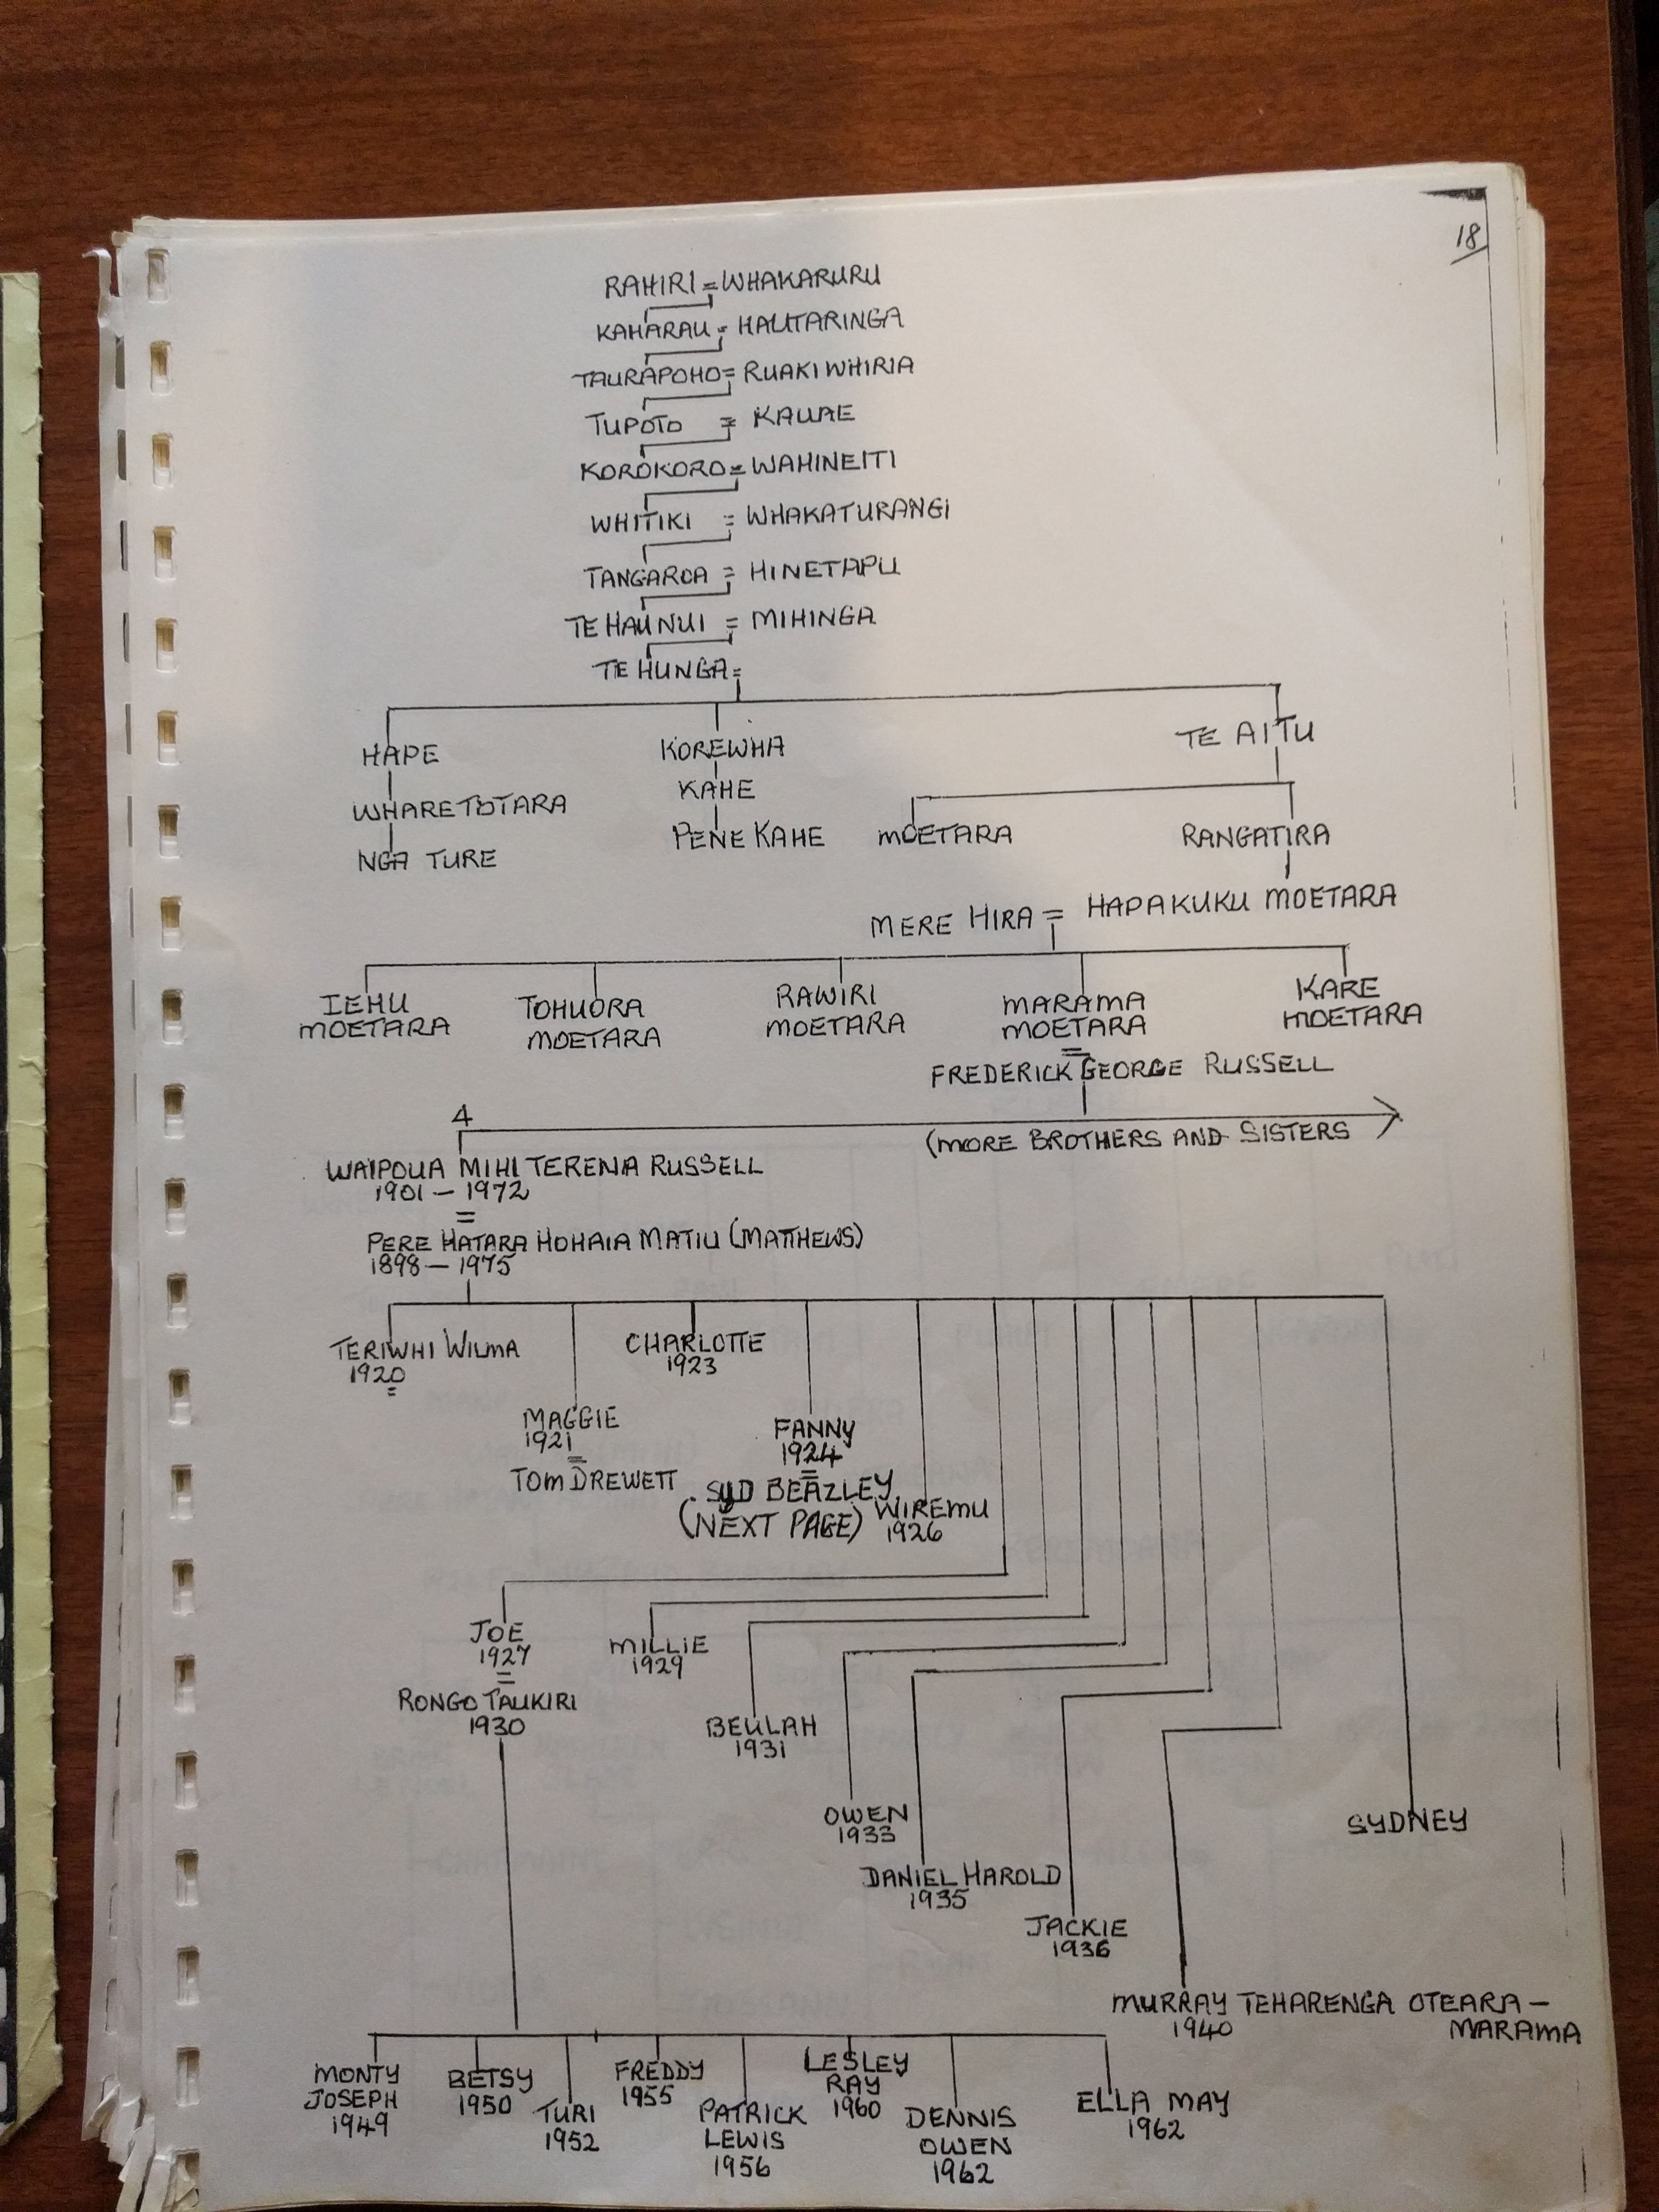 18
RAHIRI = WHAKARURU
KAHARAU = HAUTARINGA
TAURAPOHO = RUAKIWHIRIA
TUPOTO = KAUAE
KOROKORO = WAHINEITI
WHITIKI = WHAKATURANGI
TANGAROA = HINETAPU
TE HAUNUI = MIHINGA
TE HUNGA =
HAPE
KOREWHA
TE AITU
WHARETOTARA
KAHE
NGA TURE
PENE KAHE
MOETARA
RANGATIRA
MERE HIRA = HAPAKUKU MOETARA
IEHU
MOETARA
TOHUORA
MOETARA
RAWIRI
MOETARA
MARAMA
MOETARA
KARE
MOETARA
=
FREDERICK GEORGE RUSSELL
4
(MORE BROTHERS AND SISTERS
WAIPOUA MIHI TERENA RUSSELL
1901 - 1972
=
PERE HATARA HOHAIA MATIU (MATTHEWS)
1898 - 1975
TERIWHI WILMA
1920
=
MAGGIE
1921
=
TOM DREWETT
CHARLOTTE
1923
FANNY
1924
=
SYD BEAZLEY
(NEXT PAGE)
WIREMU
1926
JOE
1927
=
RONGO TAUKIRI
1930
MILLIE
1929
BEULAH
1931
OWEN
1933
DANIEL HAROLD
1935
JACKIE
1936
MURRAY TEHARENGA OTEARA -
MARAMA
1940
SYDNEY
MONTY
JOSEPH
1949
BETSY
1950
TURI
1952
FREDDY
1955
PATRICK
LEWIS
1956
LESLEY
RAY
1960
DENNIS
OWEN
1962
ELLA MAY
1962